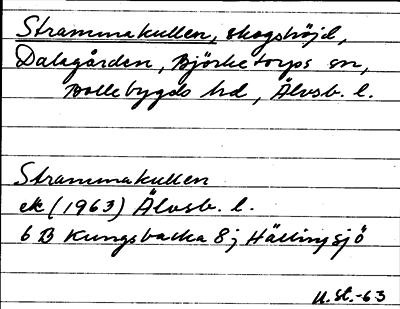 Strammakullen, skogshöjd,
Dalagården, Björketorps sn,
Bollebygds hd, Älvsb. l.
Strammakullen
ek (1963) Älvsb. l.
6 B Kungsbacka 8 j Hällingsjö
U. St. -63